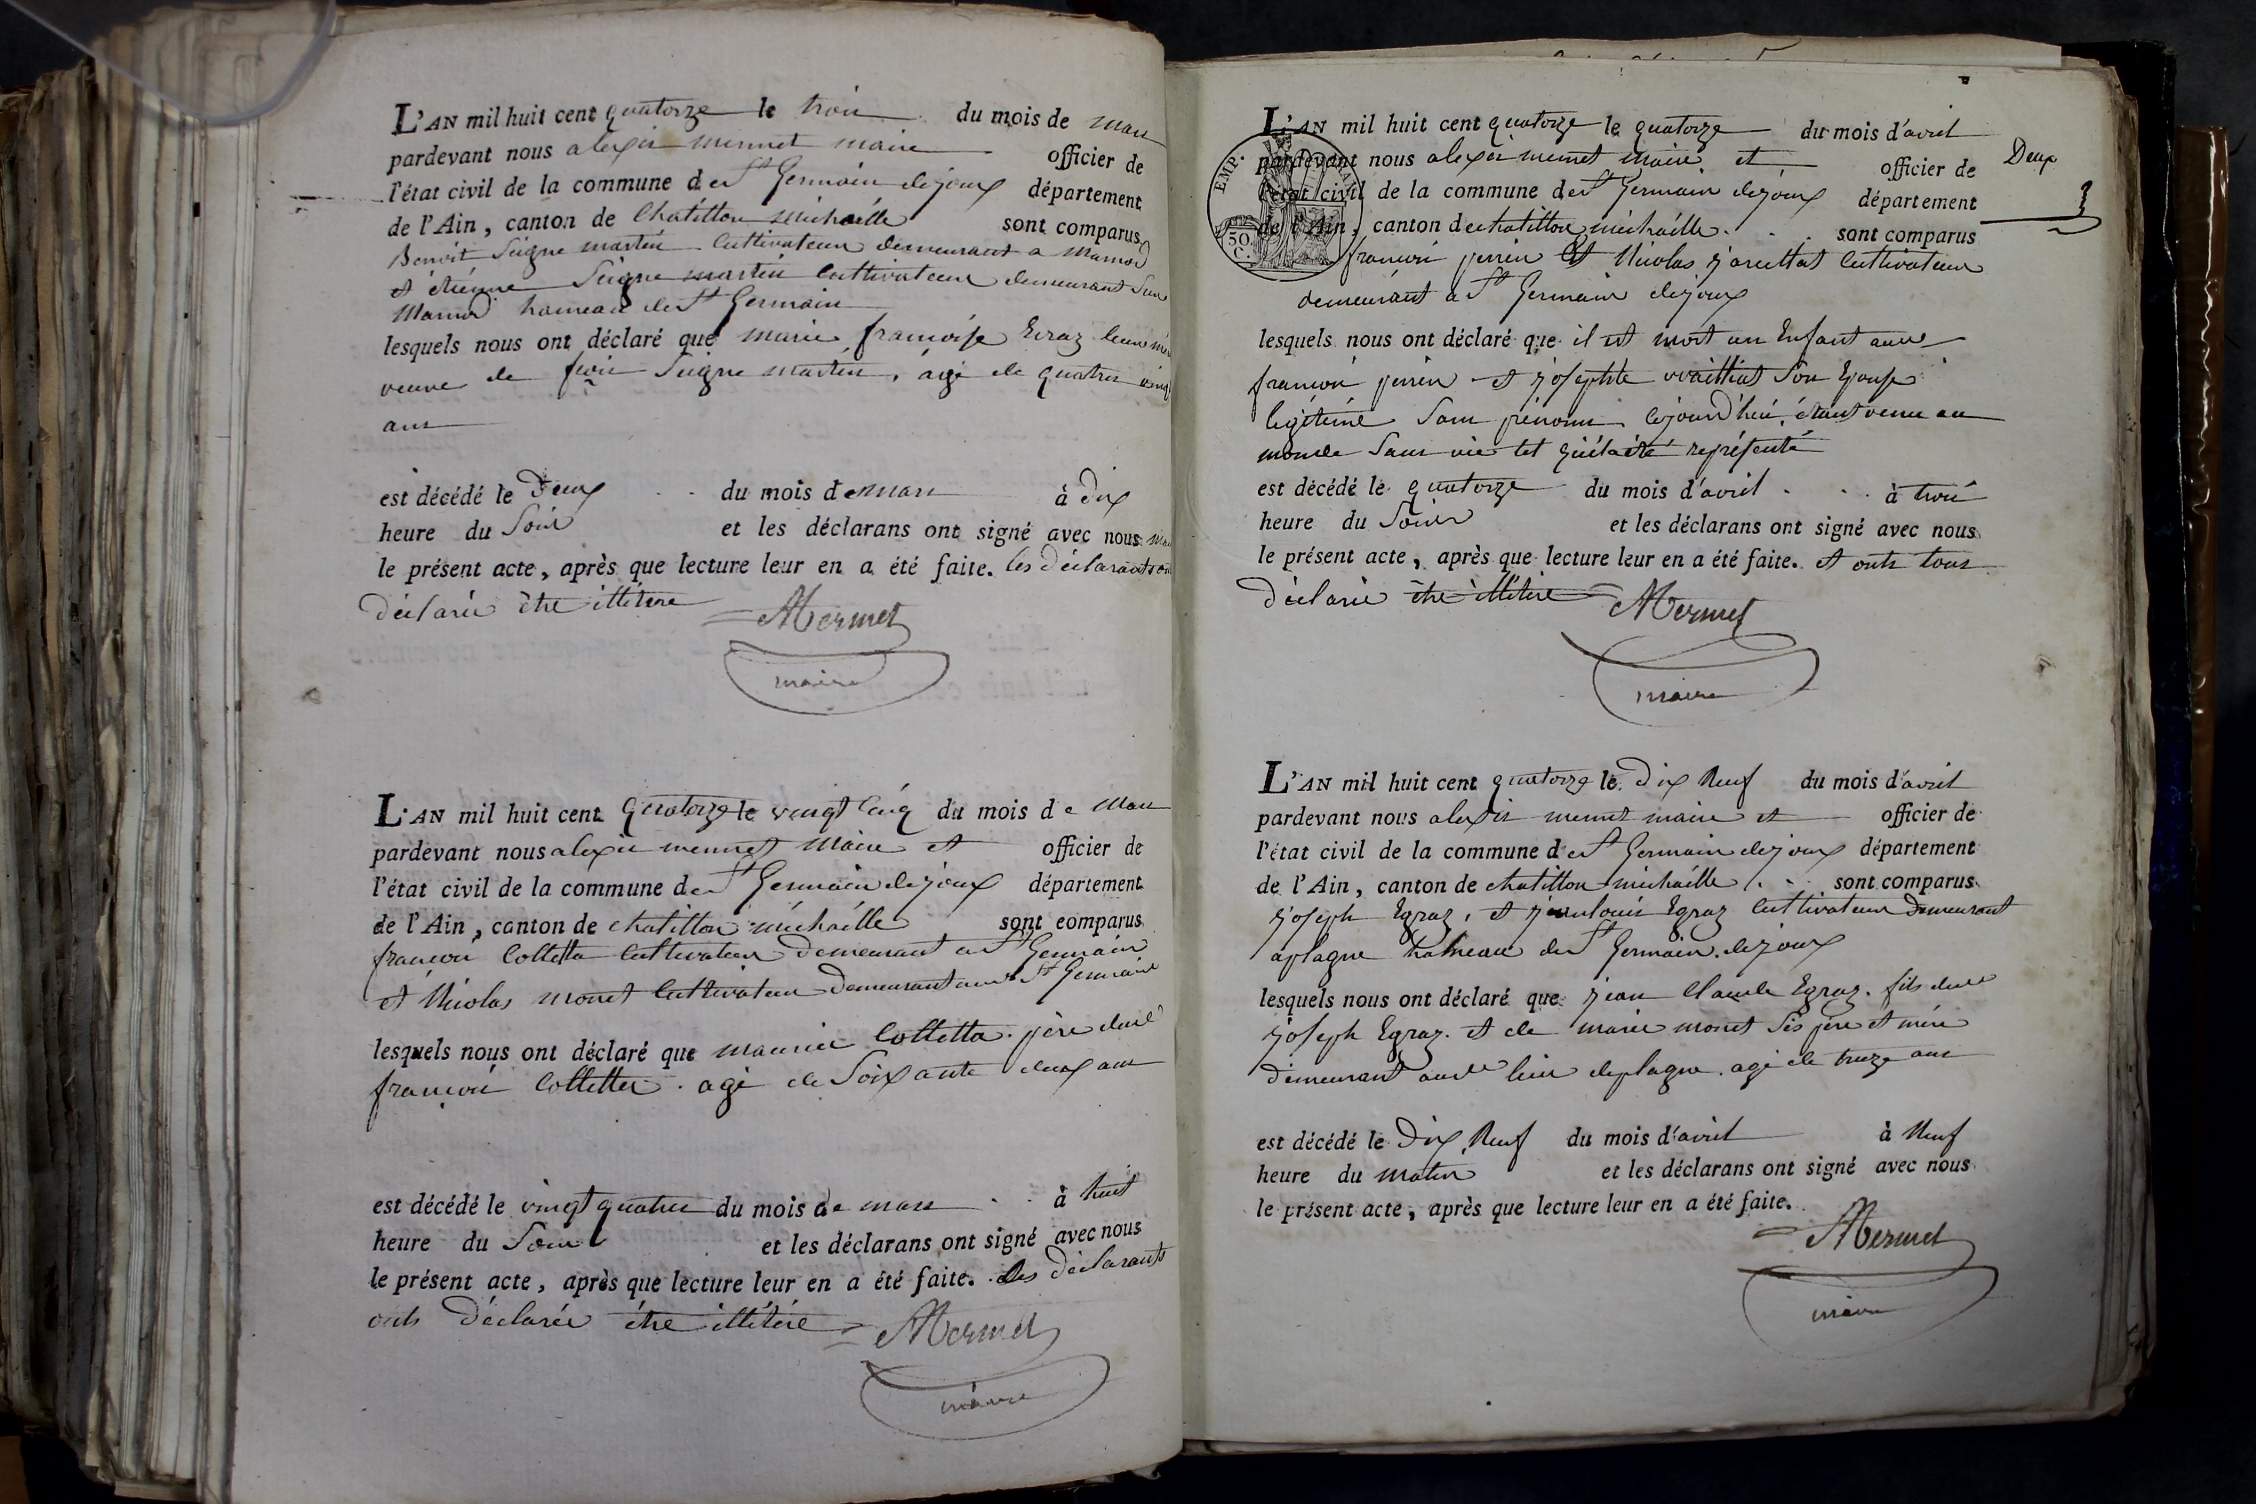 L'AN mil huit cent quatorze le trois du mois de mars
pardevant nous alexis mermet maire officier de
l'état civil de la commune de St Germain dejoux département
de l'Ain, canton de Chatillon michaille sont comparus
Benoit Seigne martin Cultivateur demeurant a marnod
et étienne Seigne martin Cultivateur demeurant Sur
marnod hameau de St Germain
lesquels nous ont déclaré que marie françoise Evraz
veuve de Seigne martin, agé de quatre vingt
ans
est décédé le Deux du mois de mars à dix
heure du Soir et les déclarans ont signé avec nous
le présent acte, après que lecture leur en a été faite. les déclarants on
déclaré être illitere AMermet
maire
L'AN mil huit cent quatorze le vingt cinq du mois de mars
pardevant nous alexis mermet maire et officier de
l'état civil de la commune de St Germain dejoux département
de l'Ain, canton de chatillon michaille sont comparus
françois Colletta Cultivateur demeurant a St Germain
et Nicolas monet Cultivateur demeurant St Germain
lesquels nous ont déclaré que maurice Colletta père dud
françois Colletta. agé de Soixante deux ans
est décédé le vingt quatre du mois de mars à huit
heure du Soir et les déclarans ont signé avec nous
le présent acte, après que lecture leur en a été faite. les déclarants
onts déclaré être illitére AMermet
maire
EMP.
50
C.
L'AN mil huit cent quatorze le quatorze du mois d'avril
pardevant nous alexis mermet maire et officier de
l'état civil de la commune de St Germain dejoux département
de l'Ain, canton de chatillon michaille. sont comparus
françois perrin Et Nicolas Cultivateur
demeurant a St Germain dejoux
Deux
lesquels nous ont déclaré que il est mort un Enfant
françois perrin et josephte Son Epouse
légitime Sans prénom cejourd'hui, étant venu au
monde Sans vie représenté
est décédé le quatorze du mois d'avril . à trois
heure du Soir et les déclarans ont signé avec nous
le présent acte, après que lecture leur en a été faite. et onts tous
déclaré être illitere AMermet
maire
L'AN mil huit cent quatorze le Dix Neuf du mois d'avril
pardevant nous alexis mermet maire et officier de
l'état civil de la commune de St Germain dejoux département
de l'Ain, canton de chatillon michaille. sont comparus
joseph Egraz, et jean louis Egraz Cultivateur Demeurant
aplagne hameau de St Germain dejoux
lesquels nous ont déclaré que jean Claude Egraz. fils
joseph Egraz. et de marie monet Ses père et mère
demeurant lieu deplagne. agé de treize ans
est décédé le Dix Neuf du mois d'avril à Neuf
heure du matin et les déclarans ont signé avec nous
le présent acte, après que lecture leur en a été faite.
AMermet
maire